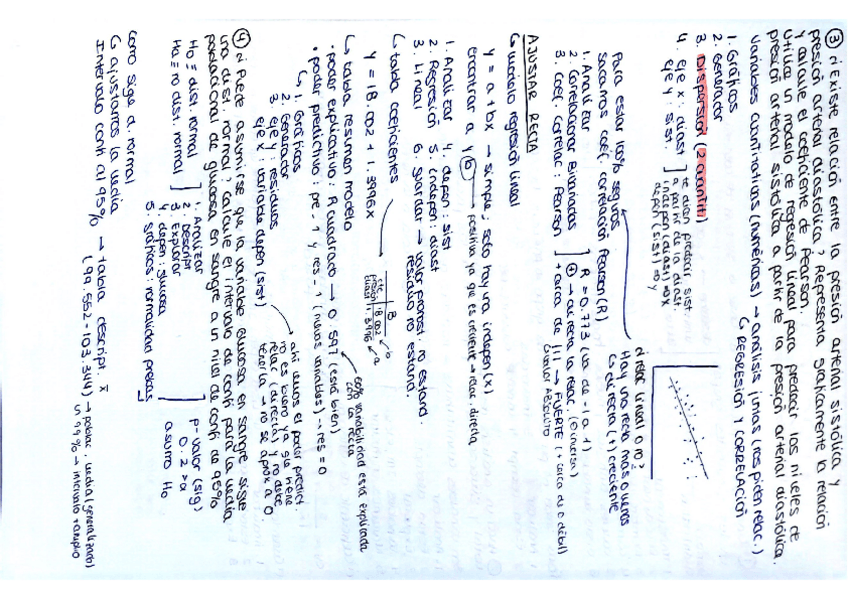 ③ ¿Existe relación entre la presión arterial sistólica y
presión arterial diastólica? Representa gráficamente la relación
y calcule el coeficiente de Pearson.
Utilice un modelo de regresión lineal para predecir los niveles de
presión arterial sistólica a partir de la presión arterial diastólica.
Variables cuantitativas (numéricas) → análisis juntas (nos piden relac.)
↳ REGRESIÓN Y CORRELACIÓN
1. Gráficos
2. Generador
3. Dispersión (2 cuantit)
4. eje x: diast
eje y: sist.
te dicen predecir sist.
a partir de la diast.
indepen (diast) => x
depen (sist) => y
¿relac lineal o no?
Hay una recta más o menos
↳ directa (+) creciente
Para estar 100% seguros
sacamos coef. correlación Pearson (R)
1. Analizar
2. Correlacionar Bivariadas
3. Coef. Correlac: Pearson
R = 0.773 (va de -1 a 1)
⊕ → directa la relac (⊖ inversa)
+ cerca de |1| → FUERTE (+ cerca de 0 débil)
valor ABSOLUTO
AJUSTAR RECTA
↳ modelo regresión lineal
y = a + bx → simple, solo hay una indepen (x)
encontrar a y b → positiva ya que es creciente → relac. directa
1. Analizar
2. Regresión
3. Lineal
4. depen: sist
5. indepen: diast
6. guardar → valor pronost. no estand.
residuo no estand.
↳ tabla coeficientes
B
cte 18.002
presión diast 1.3996
b
a
y = 18.002 + 1.3996x
↳ tabla resumen modelo
• poder explicativo: R cuadrado → 0.597 (está bien)
60% variabilidad está explicada
con la recta
• poder predictivo: pre_1 y res_1 (nuevas variables) → res = 0
↳ 1. Gráficos
2. Generador
3. eje y: residuos
eje x: variable depen (sist)
ahí vemos el poder predict.
no es bueno ya que tiene
relac (directa) y no debe
tenerla → no se aprox a 0.
④ ¿Puede asumirse que la variable glucosa en sangre sigue
una dist. normal? Calcule el intervalo de conf. para la media
poblacional de glucosa en sangre a un nivel de conf. de 95%
H₀ = dist. normal
Ha = no dist. normal
1. Analizar
2. Descript
3. Explorar
4. depen: glucosa
5. gráficos: normalidad pruebas
p-valor (sig)
0.2 > α
asumo H₀
como sigue d. normal
↳ ajustamos la media
Intervalo conf. al 95% → tabla descript. x̄
(99.552 - 103.344) → poblac. media (generalizable)
un 99% → intervalo + amplio